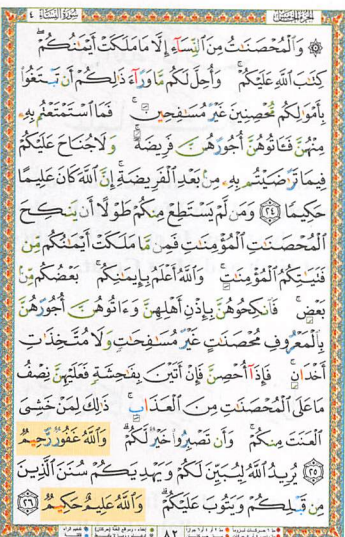 الجزء الخامس سورة النساء ٤
۞ وَالْمُحْصَنَاتُ مِنَ النِّسَاءِ إِلَّا مَا مَلَكَتْ أَيْمَانُكُمْ ۖ
كِتَابَ اللَّهِ عَلَيْكُمْ ۚ وَأُحِلَّ لَكُم مَّا وَرَاءَ ذَٰلِكُمْ أَن تَبْتَغُوا
بِأَمْوَالِكُم مُّحْصِنِينَ غَيْرَ مُسَافِحِينَ ۚ فَمَا اسْتَمْتَعْتُم بِهِ
مِنْهُنَّ فَآتُوهُنَّ أُجُورَهُنَّ فَرِيضَةً ۚ وَلَا جُنَاحَ عَلَيْكُمْ
فِيمَا تَرَاضَيْتُم بِهِ مِن بَعْدِ الْفَرِيضَةِ ۚ إِنَّ اللَّهَ كَانَ عَلِيمًا
حَكِيمًا ٢٤ وَمَن لَّمْ يَسْتَطِعْ مِنكُمْ طَوْلًا أَن يَنكِحَ
الْمُحْصَنَاتِ الْمُؤْمِنَاتِ فَمِن مَّا مَلَكَتْ أَيْمَانُكُم مِّن
فَتَيَاتِكُمُ الْمُؤْمِنَاتِ ۚ وَاللَّهُ أَعْلَمُ بِإِيمَانِكُم ۚ بَعْضُكُم مِّن
بَعْضٍ ۚ فَانكِحُوهُنَّ بِإِذْنِ أَهْلِهِنَّ وَآتُوهُنَّ أُجُورَهُنَّ
بِالْمَعْرُوفِ مُحْصَنَاتٍ غَيْرَ مُسَافِحَاتٍ وَلَا مُتَّخِذَاتِ
أَخْدَانٍ ۚ فَإِذَا أُحْصِنَّ فَإِنْ أَتَيْنَ بِفَاحِشَةٍ فَعَلَيْهِنَّ نِصْفُ
مَا عَلَى الْمُحْصَنَاتِ مِنَ الْعَذَابِ ۚ ذَٰلِكَ لِمَنْ خَشِيَ
الْعَنَتَ مِنكُمْ ۚ وَأَن تَصْبِرُوا خَيْرٌ لَّكُمْ ۗ وَاللَّهُ غَفُورٌ رَّحِيمٌ
٢٥ يُرِيدُ اللَّهُ لِيُبَيِّنَ لَكُمْ وَيَهْدِيَكُمْ سُنَنَ الَّذِينَ
مِن قَبْلِكُمْ وَيَتُوبَ عَلَيْكُمْ ۗ وَاللَّهُ عَلِيمٌ حَكِيمٌ ٢٦
٨٢